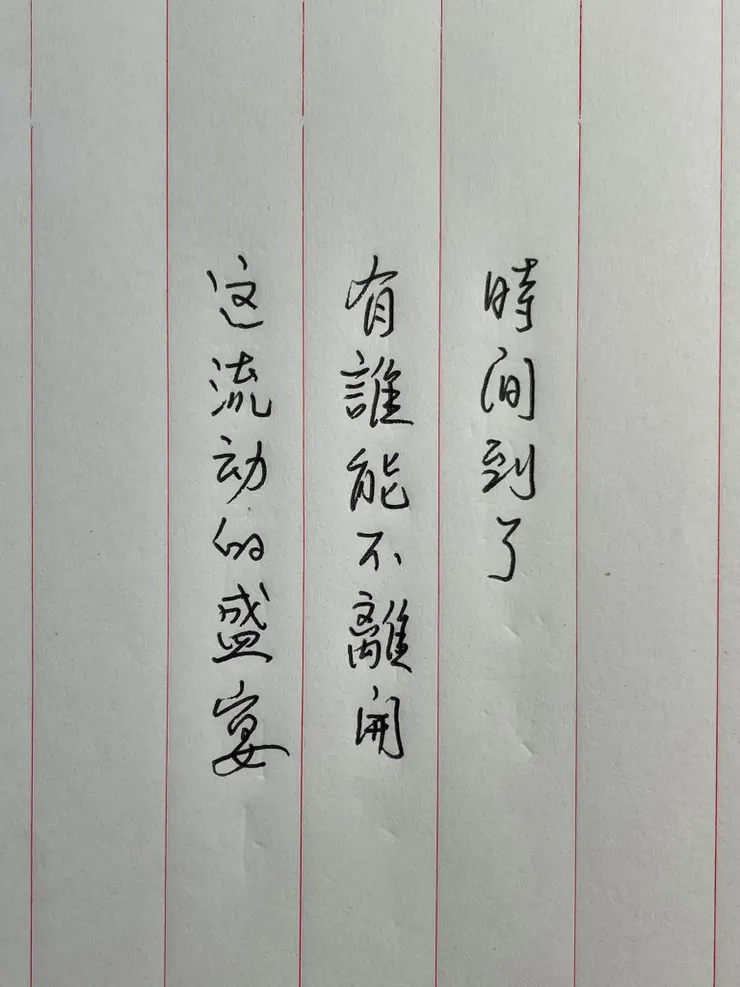 時间到了
有誰能不離開
这流动的盛宴